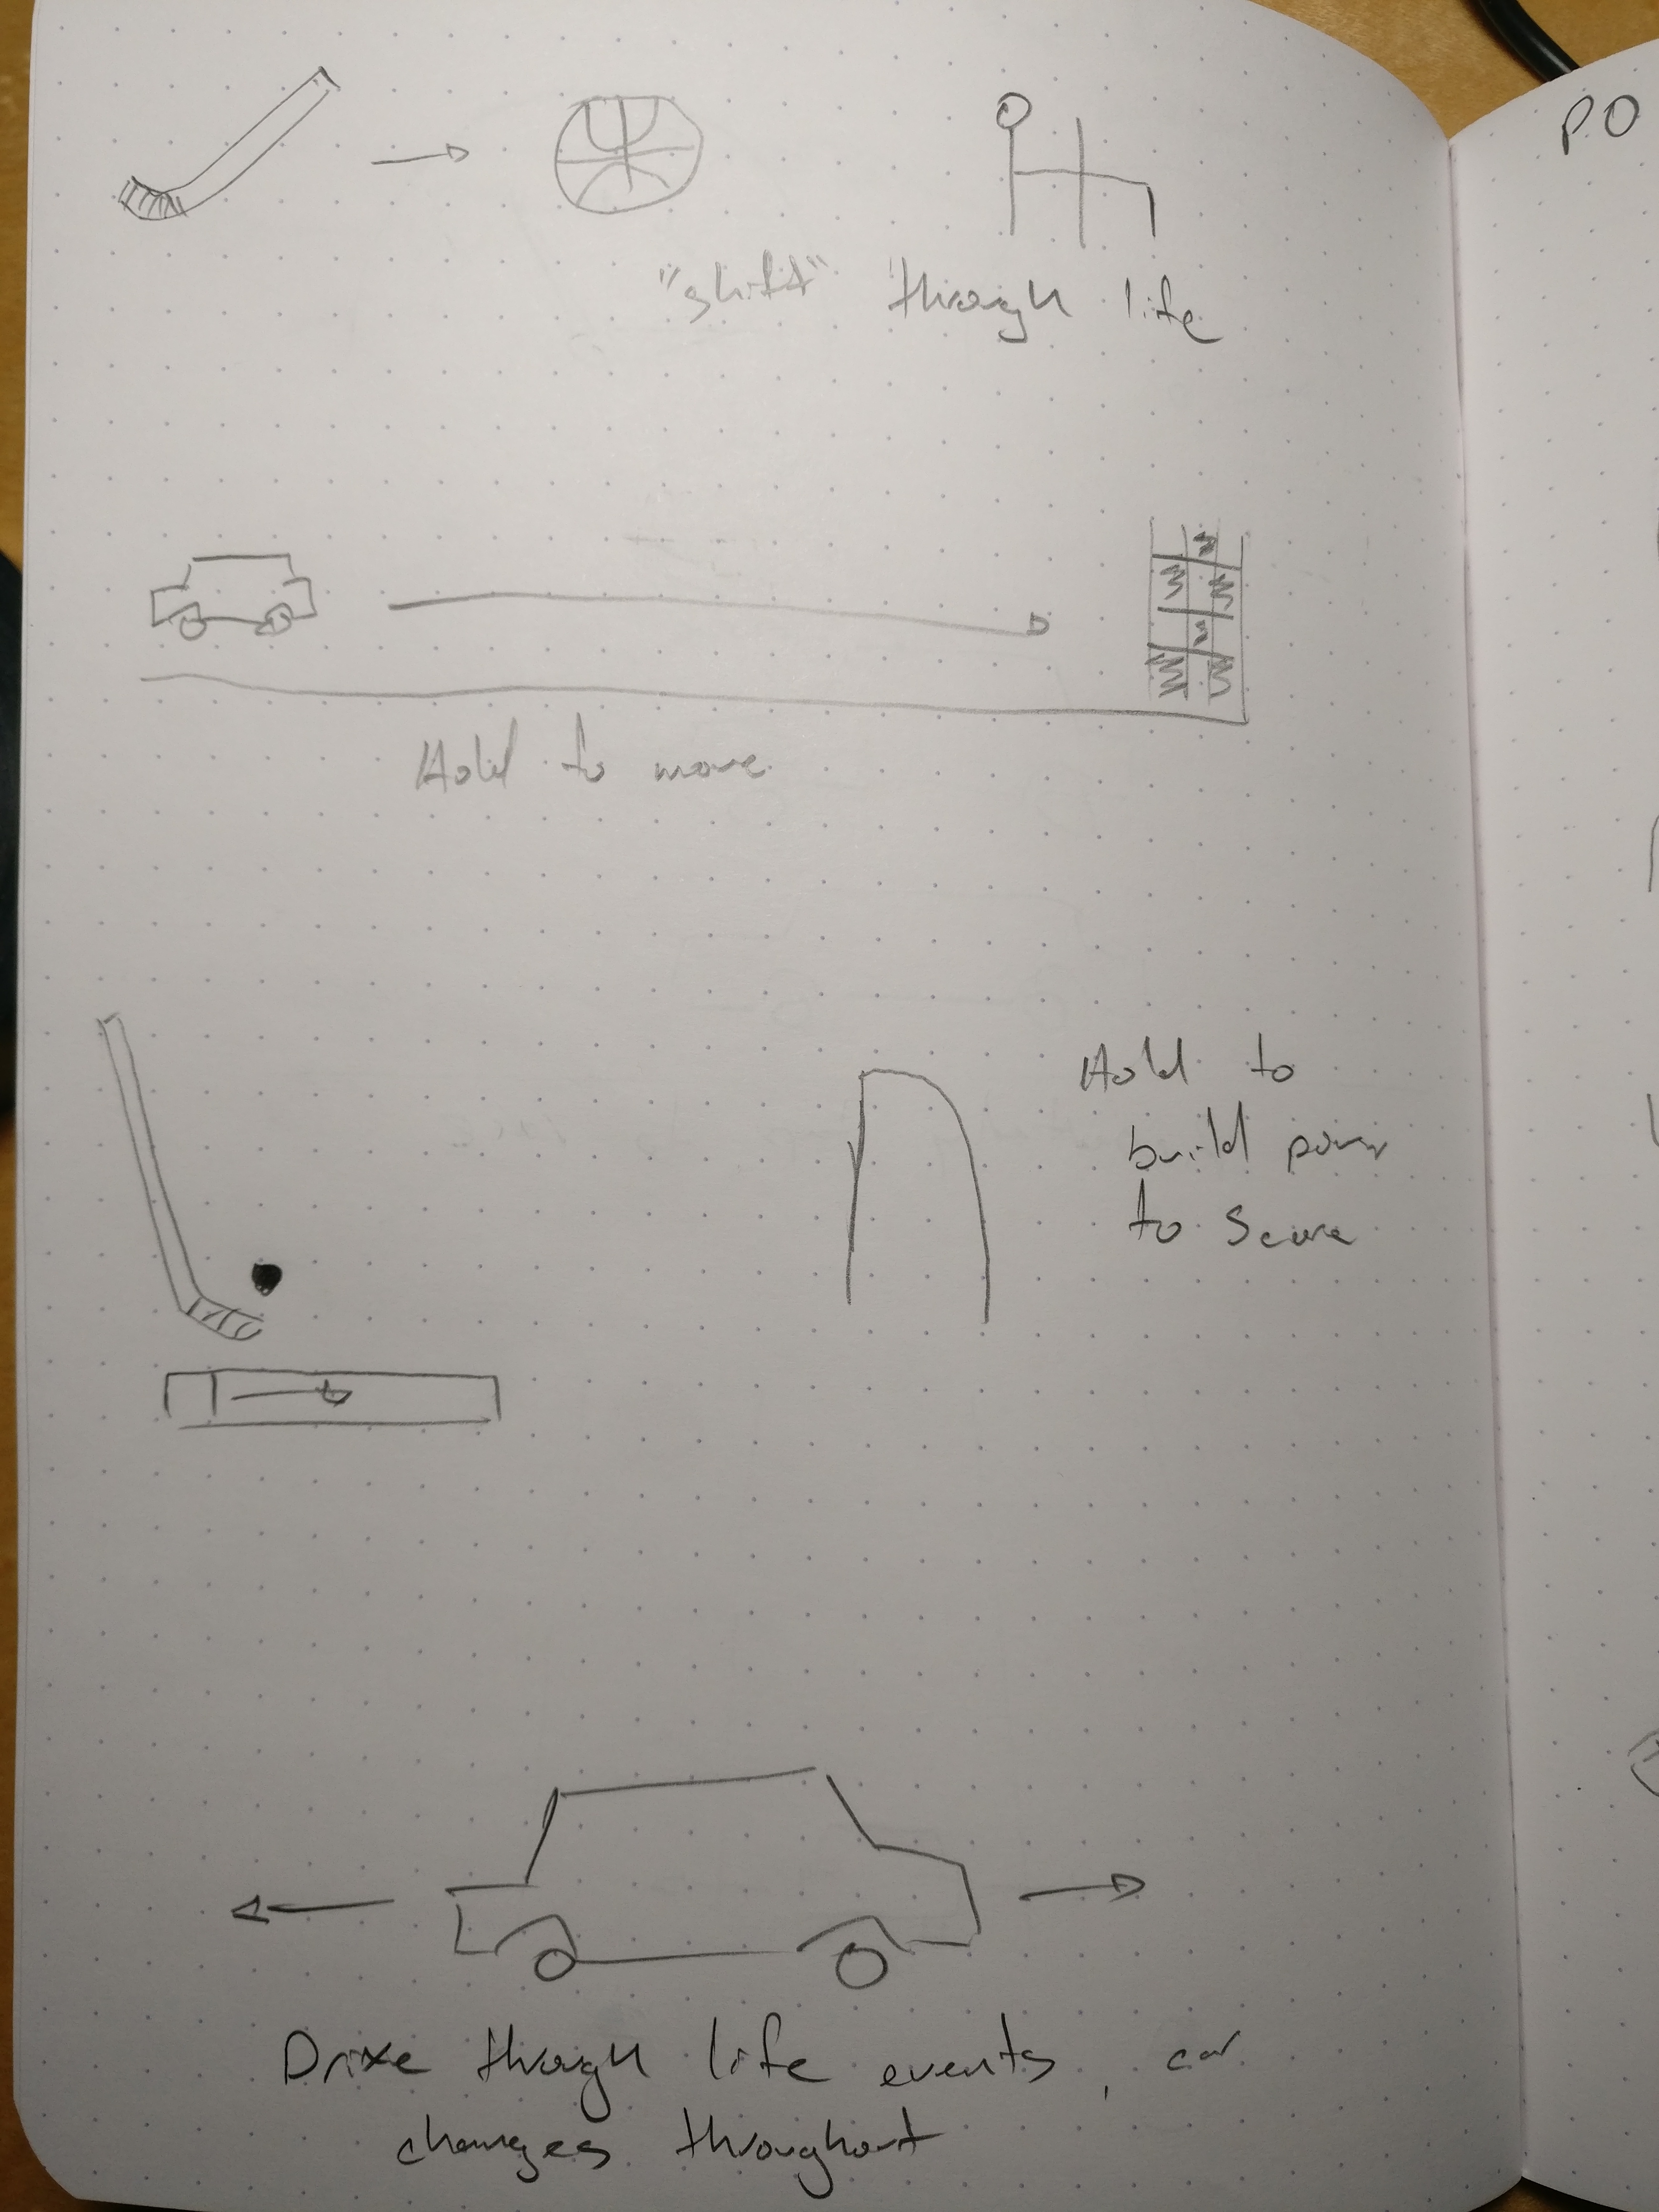 PO
"shift" through life
Hold to move
Hold to
build power
to score
Drive through life events, car
changes throughout